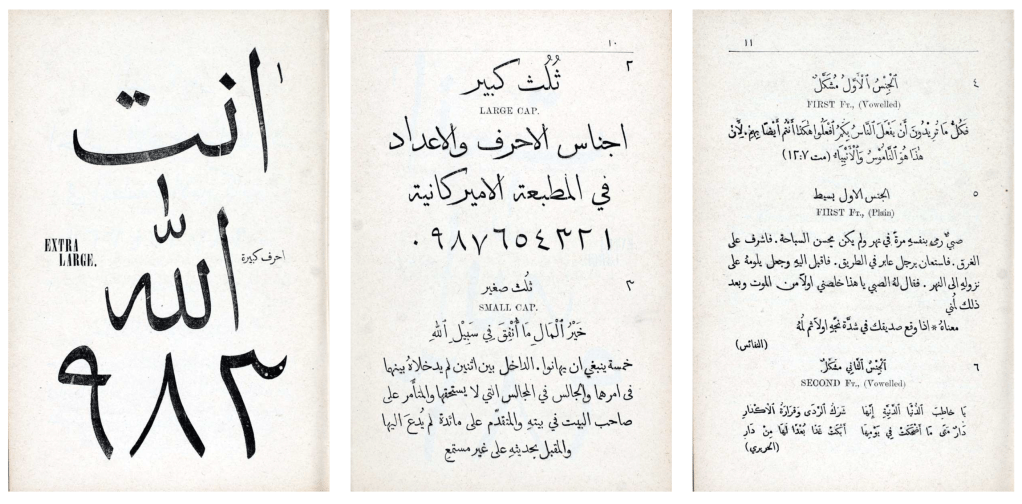 ١
انت
الله
EXTRA
LARGE.
احرف كبيرة
٩٨٣
١٠
٢
ثُلُث كبير
LARGE CAP.
اجناس الاحرف والاعداد
في المطبعة الاميركانية
٠٩٨٧٦٥٤٣٢١
٣
ثلث صغير
SMALL CAP.
خَيْرُ ٱلْمَالِ مَا أُنْفِقَ فِي سَبِيْلِ ٱللهِ
خمسة ينبغي ان يهانوا . الداخل بين اثنين لم يدخلاهُ بينهما
في امرها والجالس في المجالس التي لا يستحقها والمتأمر على
صاحب البيت في بيتهِ والمتقدّم على مائدة لم يُدعَ اليها
والمقبل بحديثهِ على غير مستمع
١١
٤
اَلْجِنْسُ ٱلْأَوَّلُ مُشَكَّلٌ
FIRST Fr., (Vowelled)
فَكُلُّ مَا تُرِيدُونَ أَنْ يَفْعَلَ ٱلنَّاسُ بِكُمُ ٱفْعَلُوا هٰكَذَا أَنْتُمْ أَيْضًا بِهِمْ. لِأَنَّ
هٰذَا هُوَ ٱلنَّامُوسُ وَٱلْأَنْبِيَاءُ (مت ١٢:٧)
٥
الجنس الاول بسيط
FIRST Fr., (Plain)
صبيٌّ رمى بنفسهِ مرةً في نهر ولم يكن يحسن السباحة . فاشرف على
الغرق . فاستعان برجل عابر في الطريق . فاقبل اليهِ وجعل يلومهُ على
نزولهِ الى النهر . فقال لهُ الصبي يا هذا خلصني اولاً من الموت وبعد
ذلك لُمني
معناهُ * اذا وقع صديقك في شدّة نجّهِ اولاً ثم لُمهُ
(النفائس)
٦
اَلْجِنْسُ ٱلثَّانِي مُشَكَّلٌ
SECOND Fr., (Vowelled)
يَا خَاطِبَ ٱلدُّنْيَا ٱلدَّنِيَّةِ إِنَّهَا شَرَكُ ٱلرَّدَى وَقَرَارَةُ ٱلْأَكْدَارِ
دَارٌ مَتَى مَا أَضْحَكَتْ فِي يَوْمِهَا أَبْكَتْ غَدًا بُعْدًا لَهَا مِنْ دَارِ
(الحريري)